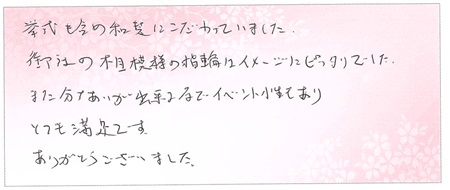 挙式も含め和装にこだわっていました。
御社の木目模様の指輪はイメージにピッタリでした。
また分かちあいが出来る等でイベント性もあり
とても満足です
ありがとうございました。